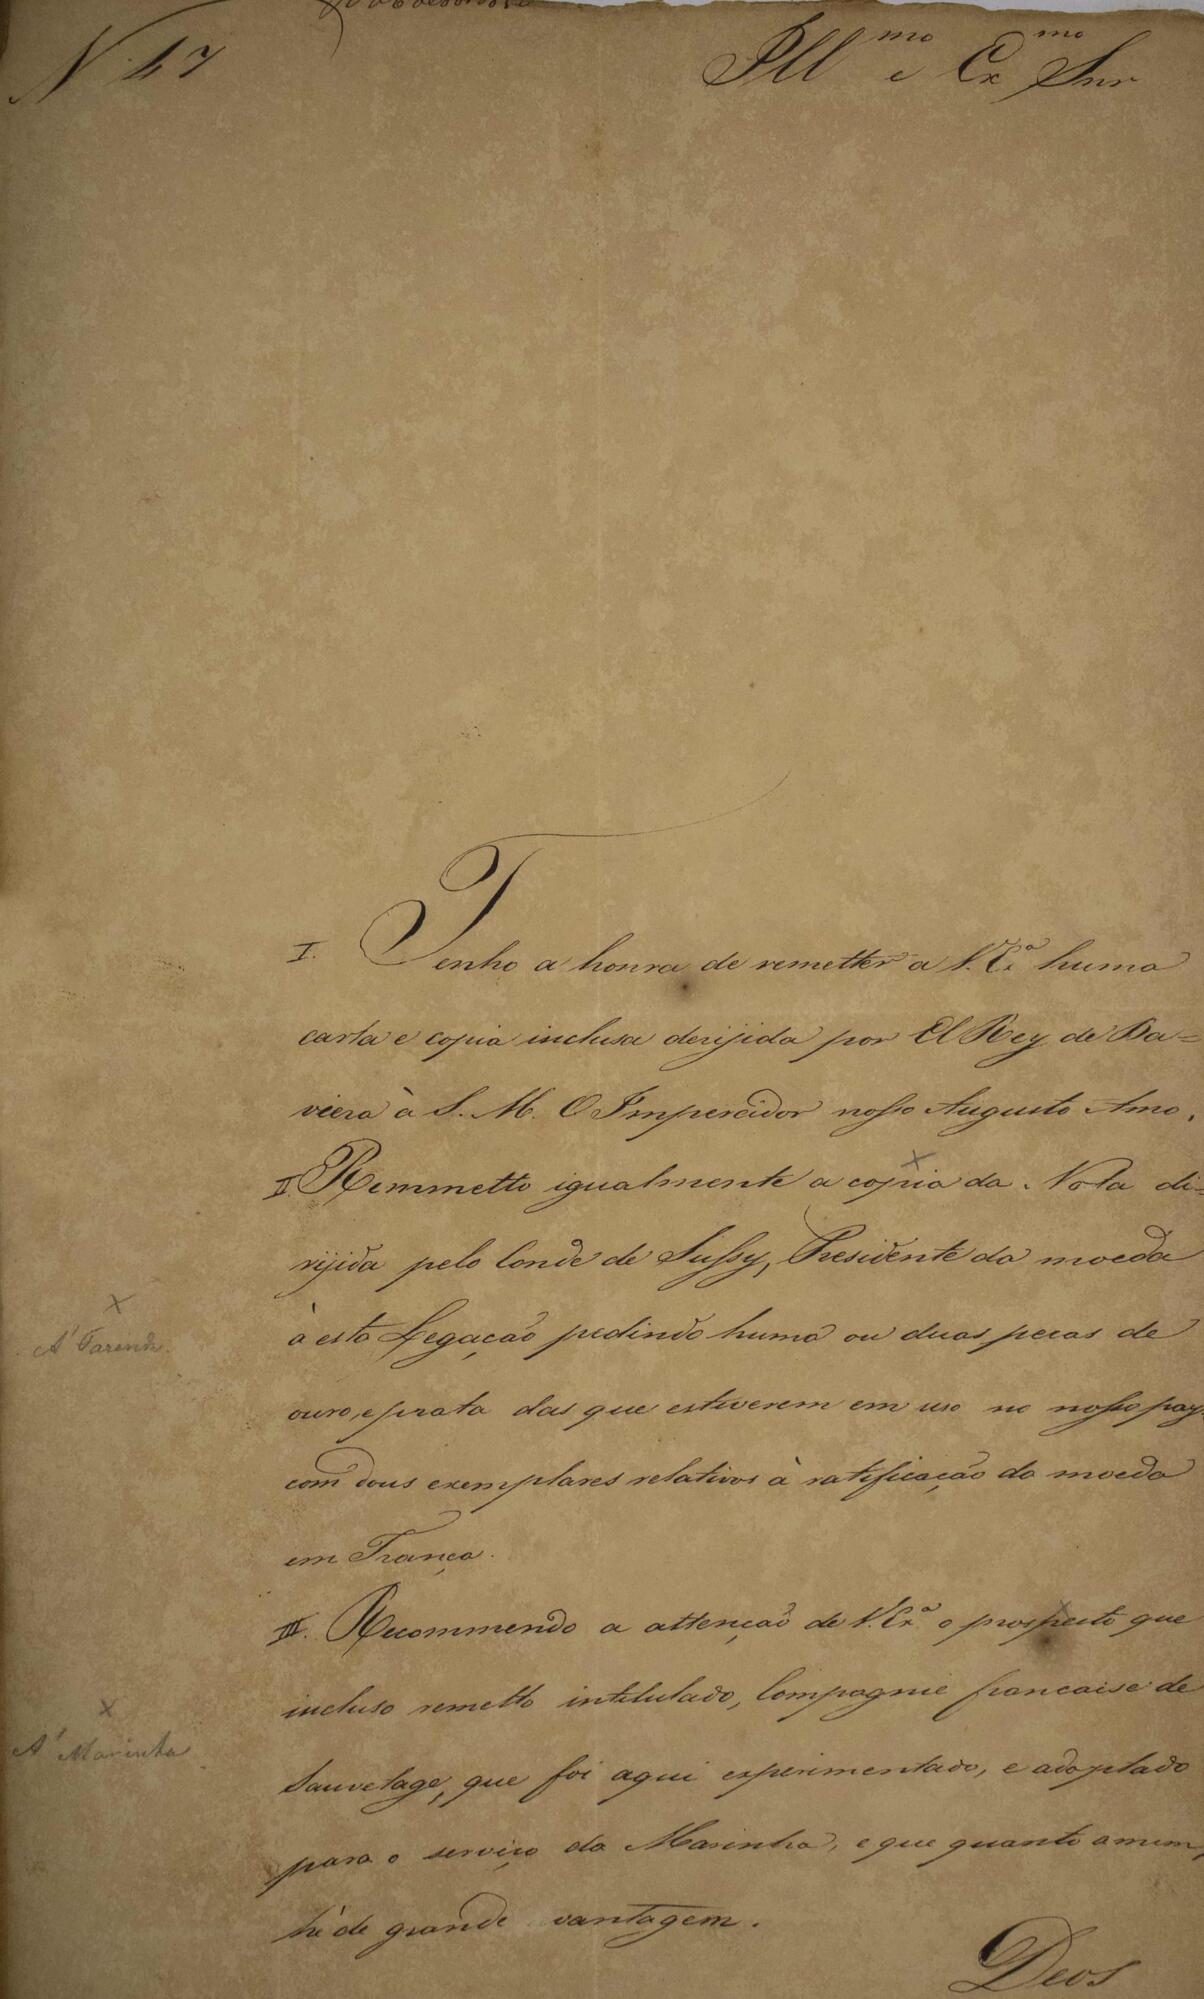 N. 47
Ill^mo e Ex^mo Snr
I. Tenho a honra de remetter a V. Ex.ª huma
carta e copia inclusa derijida por El Rey de Ba=
viera à S. M. O Imperador nosso Augusto Amo.
II Remmetto igualmente a copia da Nota di=
rijida pelo Conde de Sussy, Presidente da moeda
à esta Legação pedindo huma ou duas pecas de
ouro, e prata das que estiverem em uso no nosso pay
com dous exemplares relativos à ratificação da moeda
em França.
III. Recommendo a attenção de V. Ex.ª o prospecto que
incluso remetto intitulado, Compagnie francaise de
Sauvetage, que foi aqui experimentado, e adoptado
para o serviço da Marinha, e que quanto a mim,
hé de grande vantagem.
Deos
X
X
A' Marinha